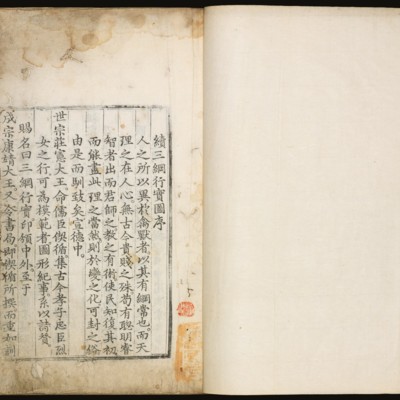 續三綱行實圖序
人之所以異於禽獸者以其有綱常也而天
理之在人心無古今貴賤之殊苟有聰明睿
智者出而君師之敎之有術使民知復其初
而能盡此理之當然則於變之化可封之俗
由是而馴致矣宣德中
世宗莊憲大王命儒臣偰循集古今孝子忠臣烈
女之行可為模範者圖形紀事系以詩贊
賜名曰三綱行實印頒中外至于
成宗康靖大王又令書局即偰循所撰而重加刪